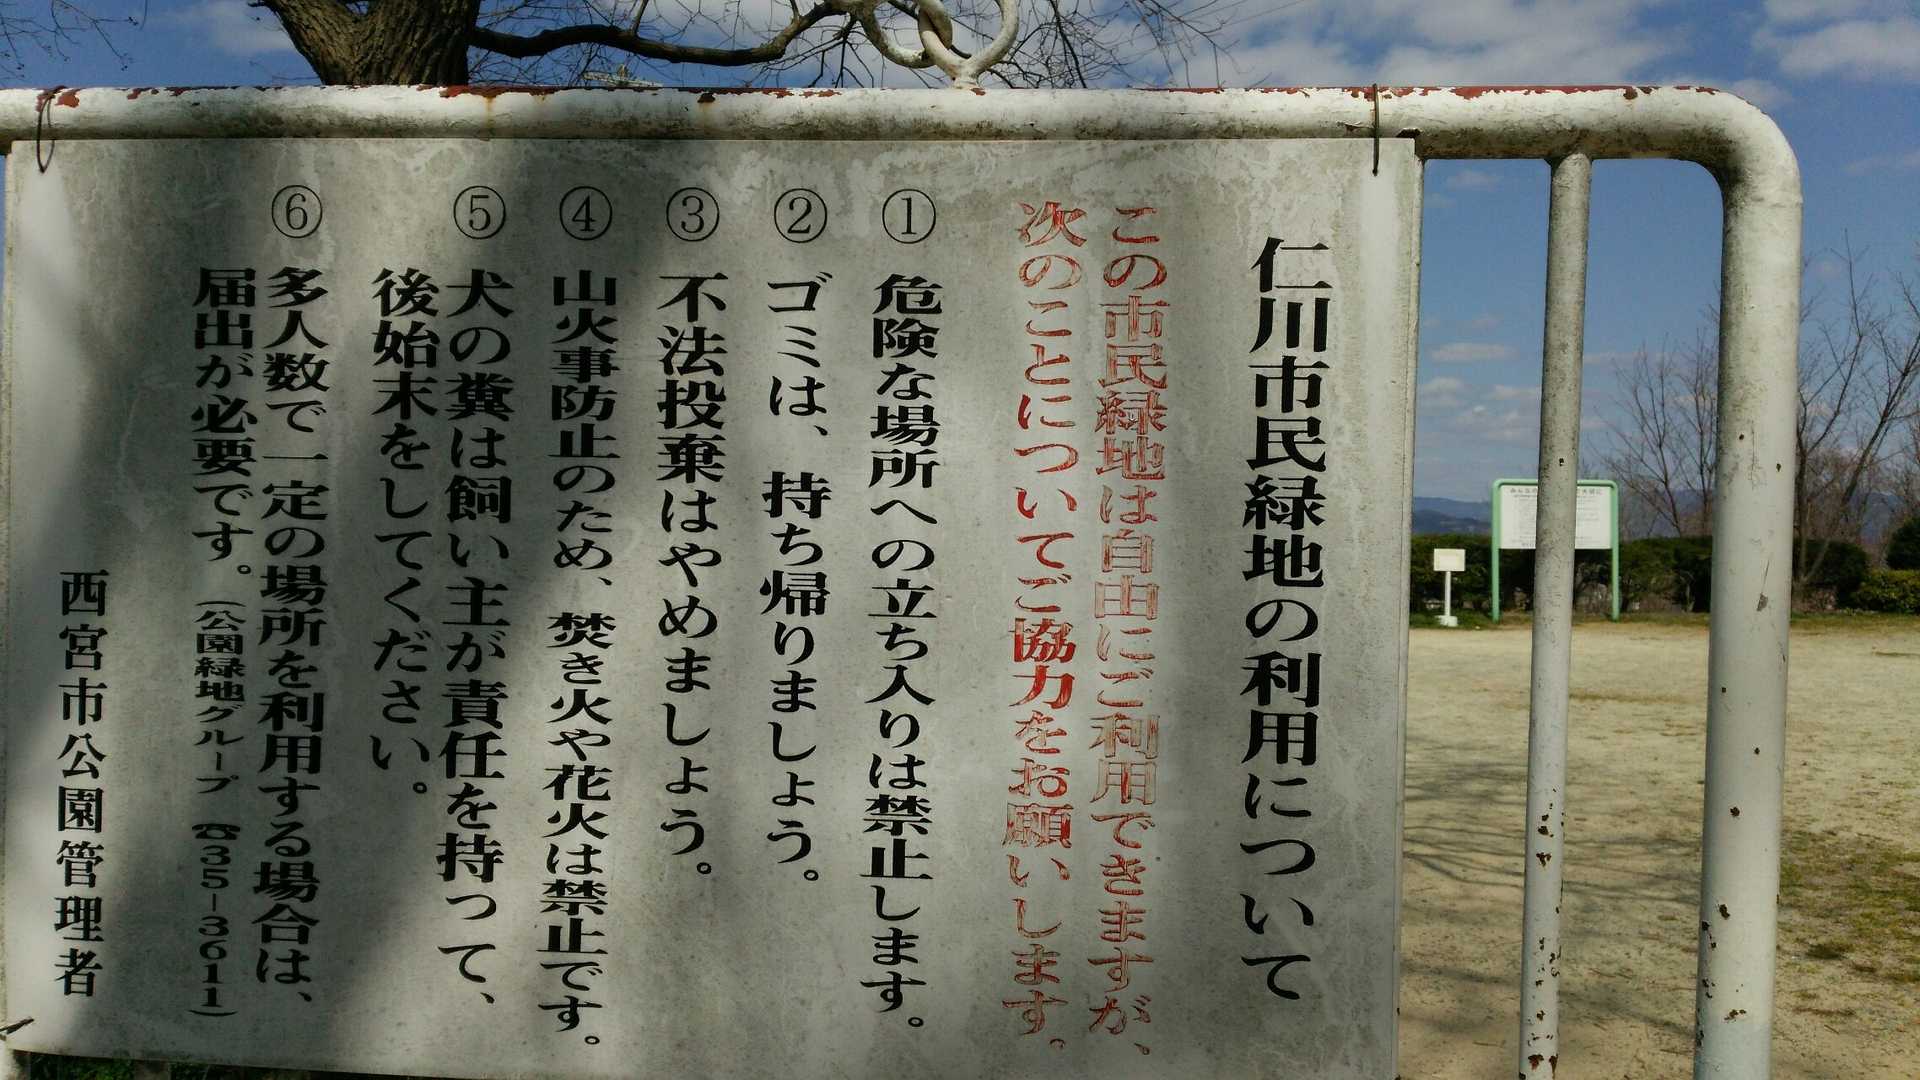 仁川市民緑地の利用について
この市民緑地は自由にご利用できますが、
次のことについてご協力をお願いします。
① 危険な場所への立ち入りは禁止します。
② ゴミは、持ち帰りましょう。
③ 不法投棄はやめましょう。
④ 山火事防止のため、焚き火や花火は禁止です。
⑤ 犬の糞は飼い主が責任を持って、
後始末をしてください。
⑥ 多人数で一定の場所を利用する場合は、
届出が必要です。(公園緑地グループ ☎35-3611)
西宮市公園管理者